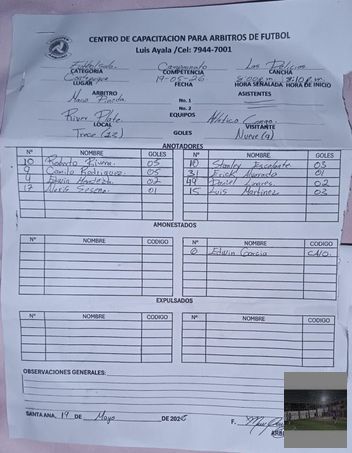 CENTRO DE CAPACITACION PARA ARBITROS DE FUTBOL
Luis Ayala /Cel: 7944-7001
Futbolsala. Campeonato Las Palicias
CATEGORIA COMPETENCIA CANCHA
19-05-26 8:00 p.m. 8:10 p.m.
LUGAR FECHA HORA SEÑALADA HORA DE INICIO
ARBITRO ASISTENTES
Pineda No. 1
No. 2
River Plate. EQUIPOS Atlético
LOCAL VISITANTE
Trece (13) GOLES Nueve (9)
ANOTADORES
Nº NOMBRE GOLES Nº NOMBRE GOLES
10 Roberto Rivera 05 10 Stanley Escalante 03
9 Camilo Rodriguez. 05 31 Erick Murado 01
4 Edwin 02 49 Daniel Linares. 02
17 Alexis 01 15 Luis Martinez 03
AMONESTADOS
Nº NOMBRE CODIGO Nº NOMBRE CODIGO
0 Edwin Garcia
EXPULSADOS
Nº NOMBRE CODIGO Nº NOMBRE CODIGO
OBSERVACIONES GENERALES:
SANTA ANA, 19 de Mayo DE 2026 F.